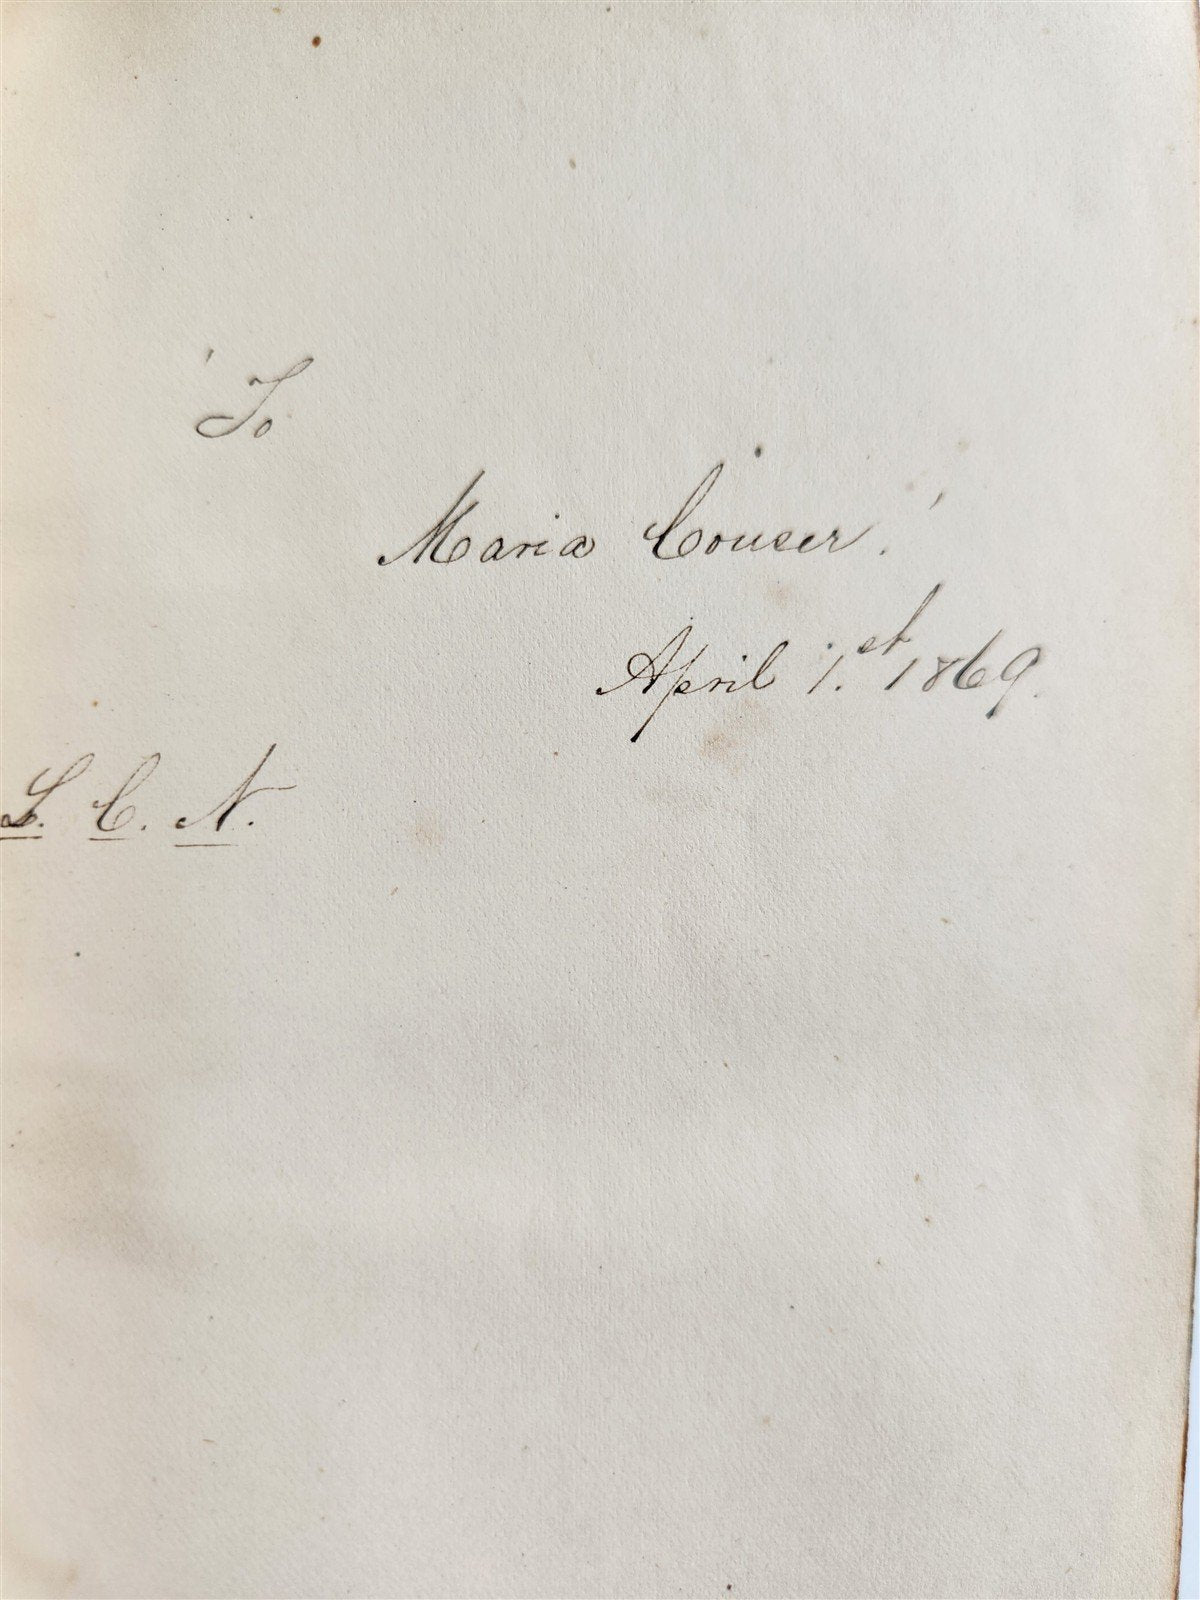 To
Maria Couser.
April 1.st 1869.
L. C. N.